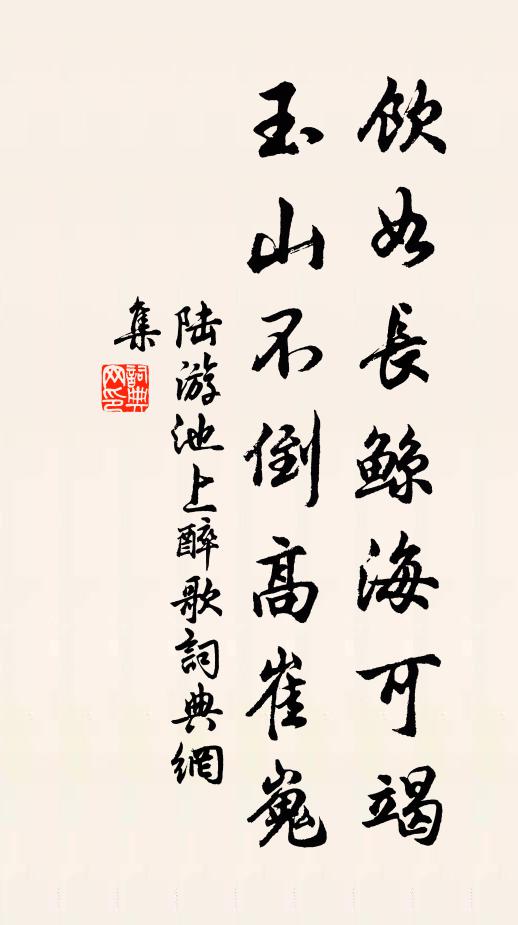 飲如長鯨海可竭
玉山不倒高崔嵬
陆游池上醉歌詞典網
集
詞典網印